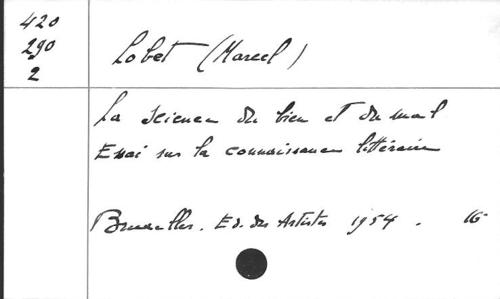 420
290
2
Lobet (Marcel)
La science du bien et du mal
Essai sur la connaissance littéraire
Bruxelles. Ed. des Artistes 1954. 16°